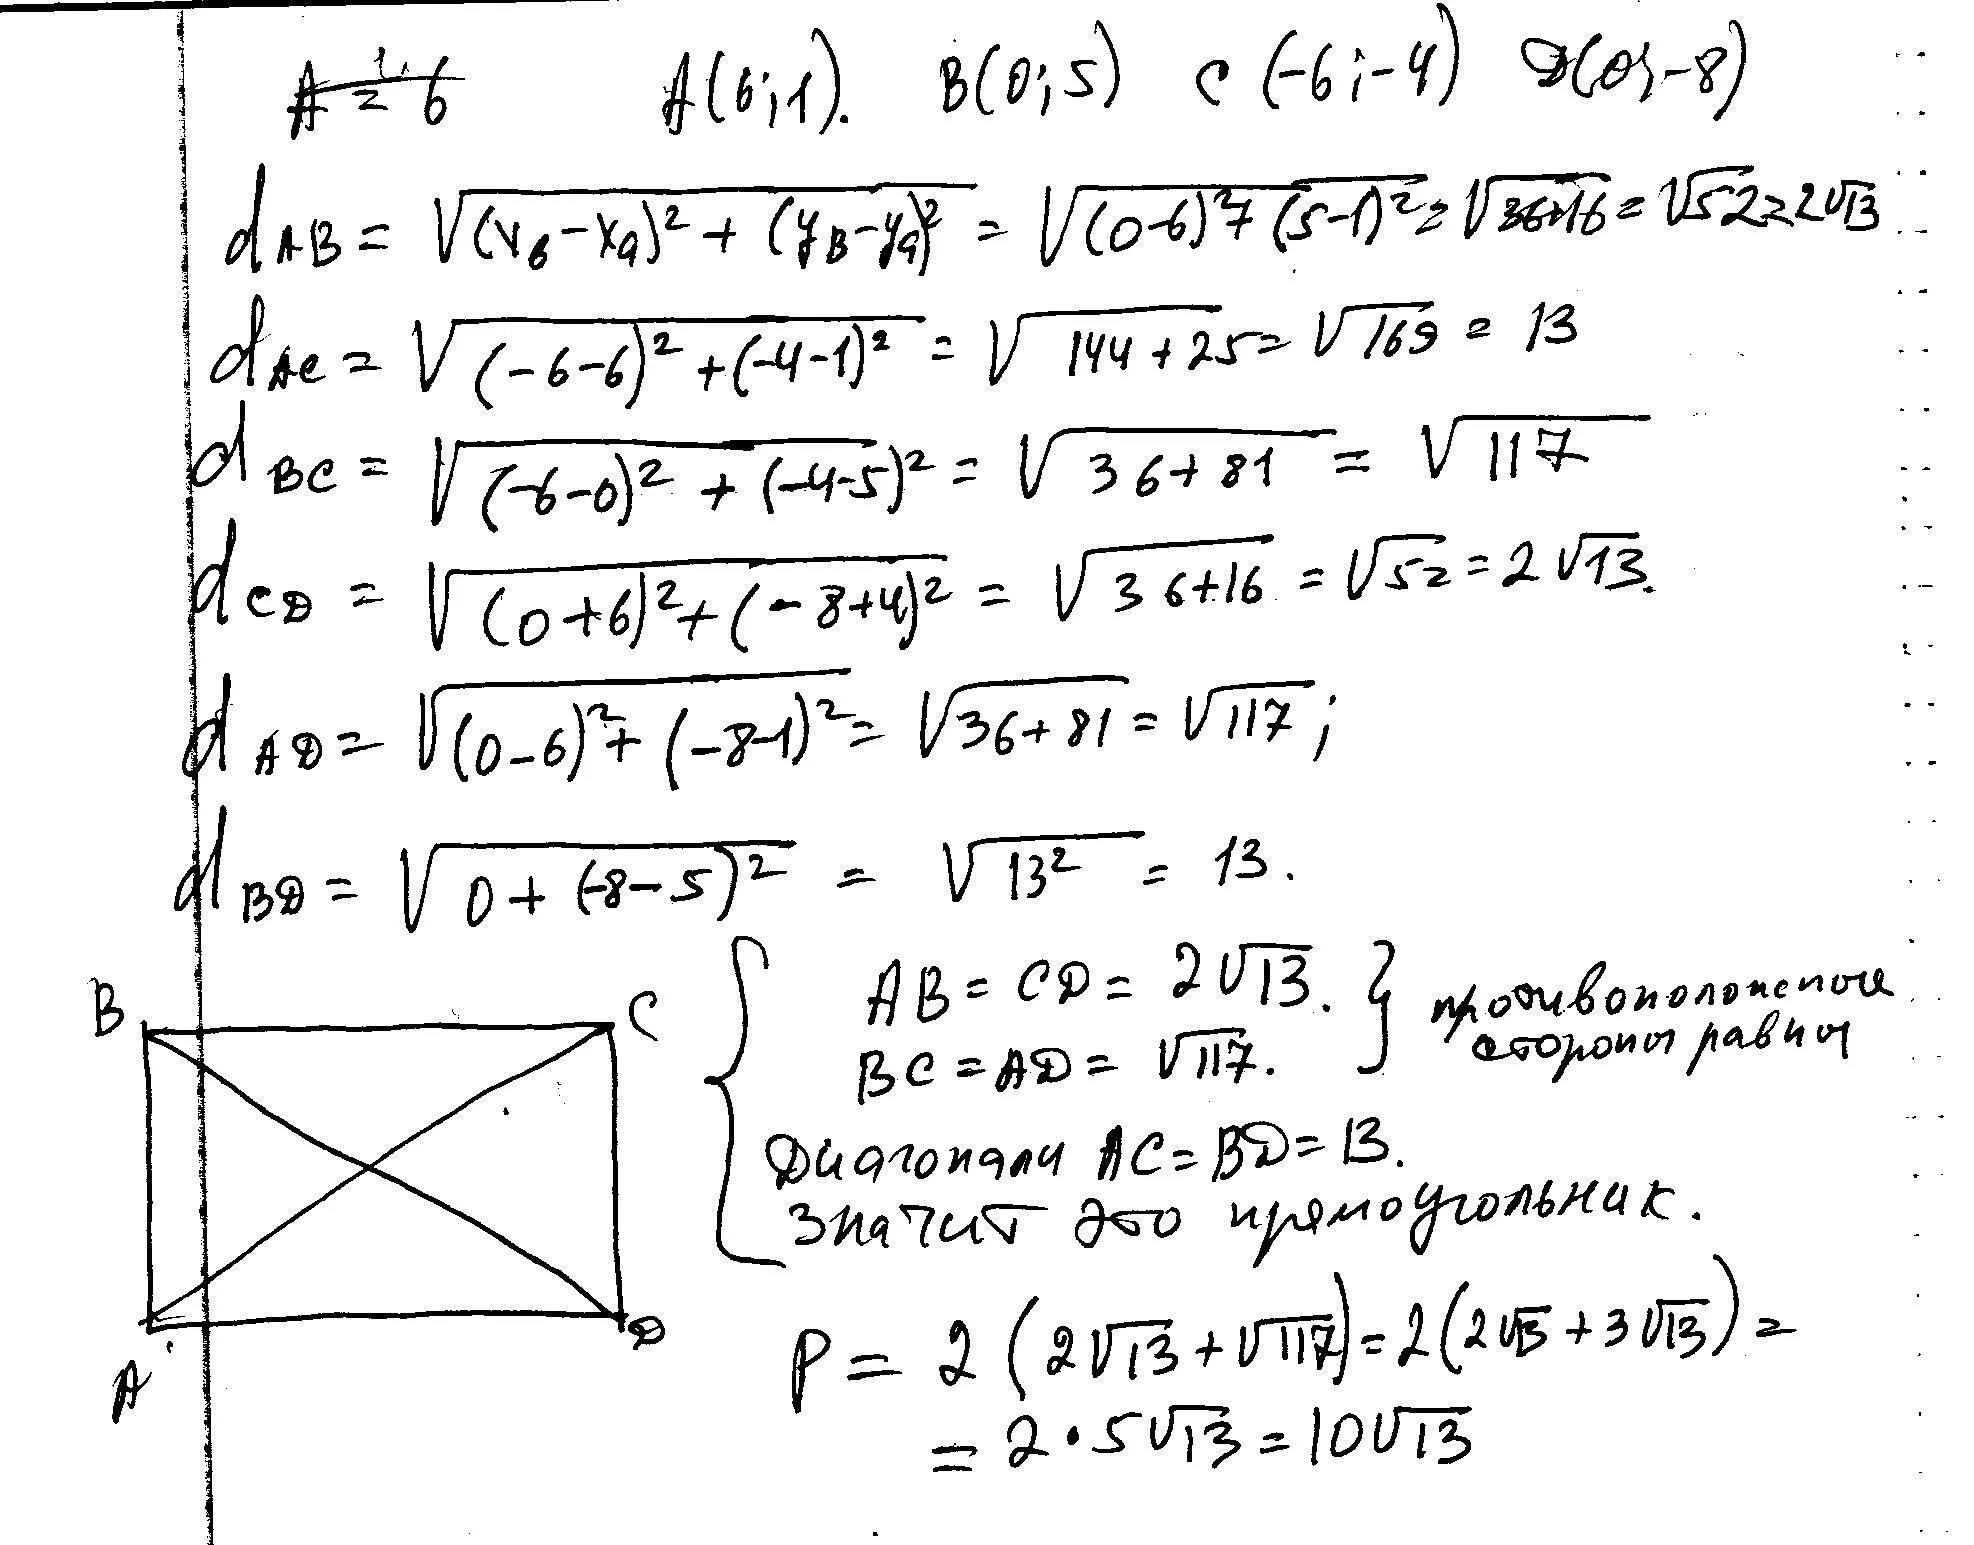 A = 6 A(6;1). B(0;5) C(-6;-4) D(0;-8)
dAB = √((xв-xa)²+(yв-ya)²) = √((0-6)²+(5-1)²) = √(36+16) = √52 = 2√13
dAC = √((-6-6)²+(-4-1)²) = √(144+25) = √169 = 13
dBC = √((-6-0)²+(-4-5)²) = √(36+81) = √117
dCD = √((0+6)²+(-8+4)²) = √(36+16) = √52 = 2√13.
dAD = √((0-6)²+(-8-1)²) = √(36+81) = √117;
dBD = √(0+(-8-5)²) = √(13²) = 13.
B C
A D
AB = CD = 2√13.
BC = AD = √117.
противоположные
стороны равны
Диагонали AC = BD = 13.
значит это прямоугольник.
P = 2(2√13+√117) = 2(2√13+3√13) =
= 2·5√13 = 10√13